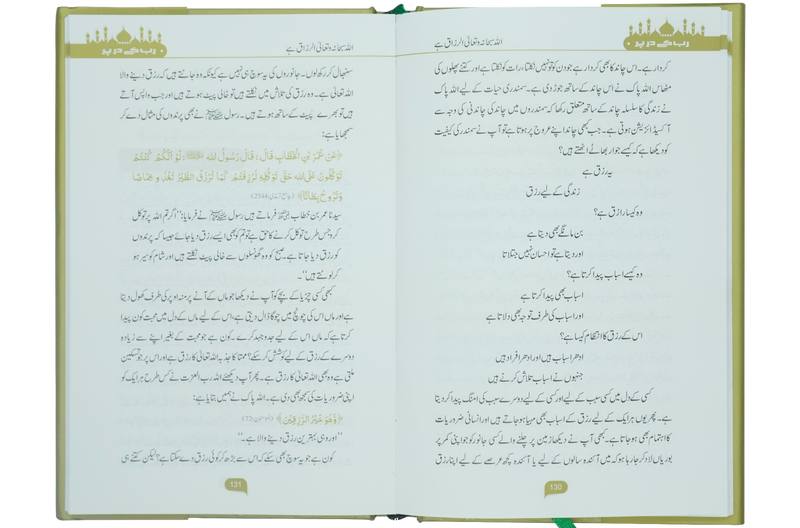 رب کے در پر
اللہ سبحانہ وتعالیٰ الرزاق ہے
کردار ہے۔ اس چاند کا بھی کردار ہے جو دن کو تو نہیں نکلتا، رات کو نکلتا ہے اور کتنے پھلوں کی
مٹھاس اللہ پاک نے اس چاند کے ساتھ جوڑ دی ہے۔ سمندری حیات کے لیے اللہ پاک
نے زندگی کا سلسلہ چاند کے ساتھ متعلق رکھا کہ سمندروں میں چاند کی چاندنی کی وجہ سے
آکسیڈائزیشن ہوتی ہے۔ جب کبھی چاند اپنے عروج پر ہوتا ہے تو آپ نے سمندر کی کیفیت
کو دیکھا ہے کہ کیسے جوار بھاٹے اٹھتے ہیں؟
یہ رزق ہے
زندگی کے لیے رزق
وہ کیسا رازق ہے؟
بن مانگے بھی دیتا ہے
اور دیتا ہے تو احسان نہیں جتلاتا
وہ کیسے اسباب پیدا کرتا ہے؟
اسباب بھی پیدا کرتا ہے
اور اسباب کی طرف توجہ بھی دلاتا ہے
اس کے رزق کا انتظام کیسا ہے؟
ادھر اسباب ہیں اور ادھر افراد ہیں
جنہوں نے اسباب تلاش کرنے ہیں
کسی کے دل میں کسی سبب کے لیے اور کسی کے لیے دوسرے سبب کی امنگ پیدا کر دیتا
ہے۔ پھر یوں ہر ایک کے لیے رزق کے اسباب بھی مہیا ہو جاتے ہیں اور انسانی ضروریات
کا اہتمام بھی ہو جاتا ہے۔ کبھی آپ نے دیکھا زمین پر چلنے والے کسی جانور کو جو اپنی کمر پر
بوریاں لاد کر جا رہا ہو کہ میں آئندہ سالوں کے لیے یا آئندہ کچھ عرصے کے لیے اپنا رزق
130
رب کے در پر
اللہ سبحانہ وتعالیٰ الرزاق ہے
سنبھال کر رکھ لوں۔ جانوروں کی یہ سوچ ہی نہیں ہے کیونکہ وہ جانتے ہیں کہ رزق دینے والا
اللہ تعالیٰ ہی ہے۔ وہ رزق کی تلاش میں نکلتے ہیں تو خالی پیٹ ہوتے ہیں اور جب واپس آتے
ہیں تو بھرے پیٹ کے ساتھ ہوتے ہیں۔ رسول ﷺ نے بھی پرندوں کی مثال دے کر
سمجھایا ہے:
﴿عَنْ عُمَرَ بْنِ الْخَطَّابِ قَالَ: قَالَ رَسُولُ اللهِ ﷺ: لَوْ أَنَّكُمْ كُنْتُمْ
تَوَكَّلُونَ عَلَى اللهِ حَقَّ تَوَكُّلِهِ لَرُزِقْتُمْ كَمَا تُرْزَقُ الطَّيْرُ تَغْدُو خِمَاصًا
وَتَرُوحُ بِطَانًا﴾ (جامع ترمذی:2344)
سیدنا عمر بن خطاب رضی اللہ عنہ فرماتے ہیں رسول ﷺ نے فرمایا: ’’اگر تم اللہ پر توکل
کرو جس طرح توکل کرنے کا حق ہے تو تم کو بھی ایسے رزق دیا جائے جیسا کہ پرندوں
کو رزق دیا جاتا ہے۔ صبح کو وہ گھونسلوں سے خالی پیٹ نکلتے ہیں اور شام کو سیر ہو
کر لوٹتے ہیں‘‘۔
کبھی کسی چڑیا کے بچے کو آپ نے دیکھا جو ماں کے آنے پر منہ اوپر کی طرف کھول دیتا
ہے اور ماں اس کی چونچ میں چوگا ڈال دیتی ہے، اس کے لیے ماں کے دل میں محبت کون پیدا
کرتا ہے کہ ماں اس کے لیے جدوجہد کرے۔ کون ہے جو محبت کے بغیر اپنے سے زیادہ
دوسرے کے رزق کے لیے کوشش کر سکے؟ ممتا کا جذبہ اللہ تعالیٰ کا رزق ہے اور اس پر جو تسکین
ملتی ہے وہ بھی اللہ تعالیٰ کا رزق ہے۔ پھر آپ دیکھئے اللہ رب العزت نے کس طرح ہر ایک کو
اپنی ضروریات کی سمجھ بھی دی ہے۔ اللہ پاک نے ہمیں بتایا ہے:
﴿وَهُوَ خَيْرُ الرَّازِقِينَ﴾ (المومنون:72)
’’اور وہی بہترین رزق دینے والا ہے۔‘‘
کون ہے جو یہ سوچ بھی سکے کہ اس سے بڑھ کر کوئی رزق دے سکتا ہے؟ لیکن کتنے ہی
131